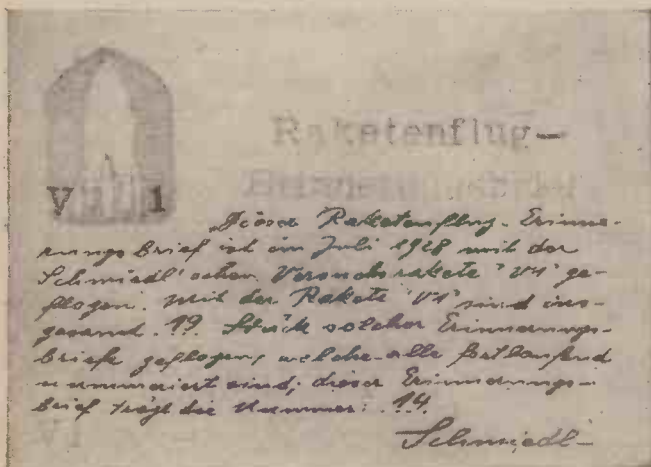 V 1
Raketenflug-
Dieser Raketenflug-Erinne-
rungsbrief ist im Juli 1928 mit der
Schmiedl'schen Versuchsrakete "V1" ge-
flogen. Mit der Rakete "V1" sind ins-
gesamt 19 Stück solcher Erinnerungs-
briefe geflogen, welche alle fortlaufend
nummeriert sind; dieser Erinnerungs-
brief trägt die Nummer: 14.
Schmiedl
V1